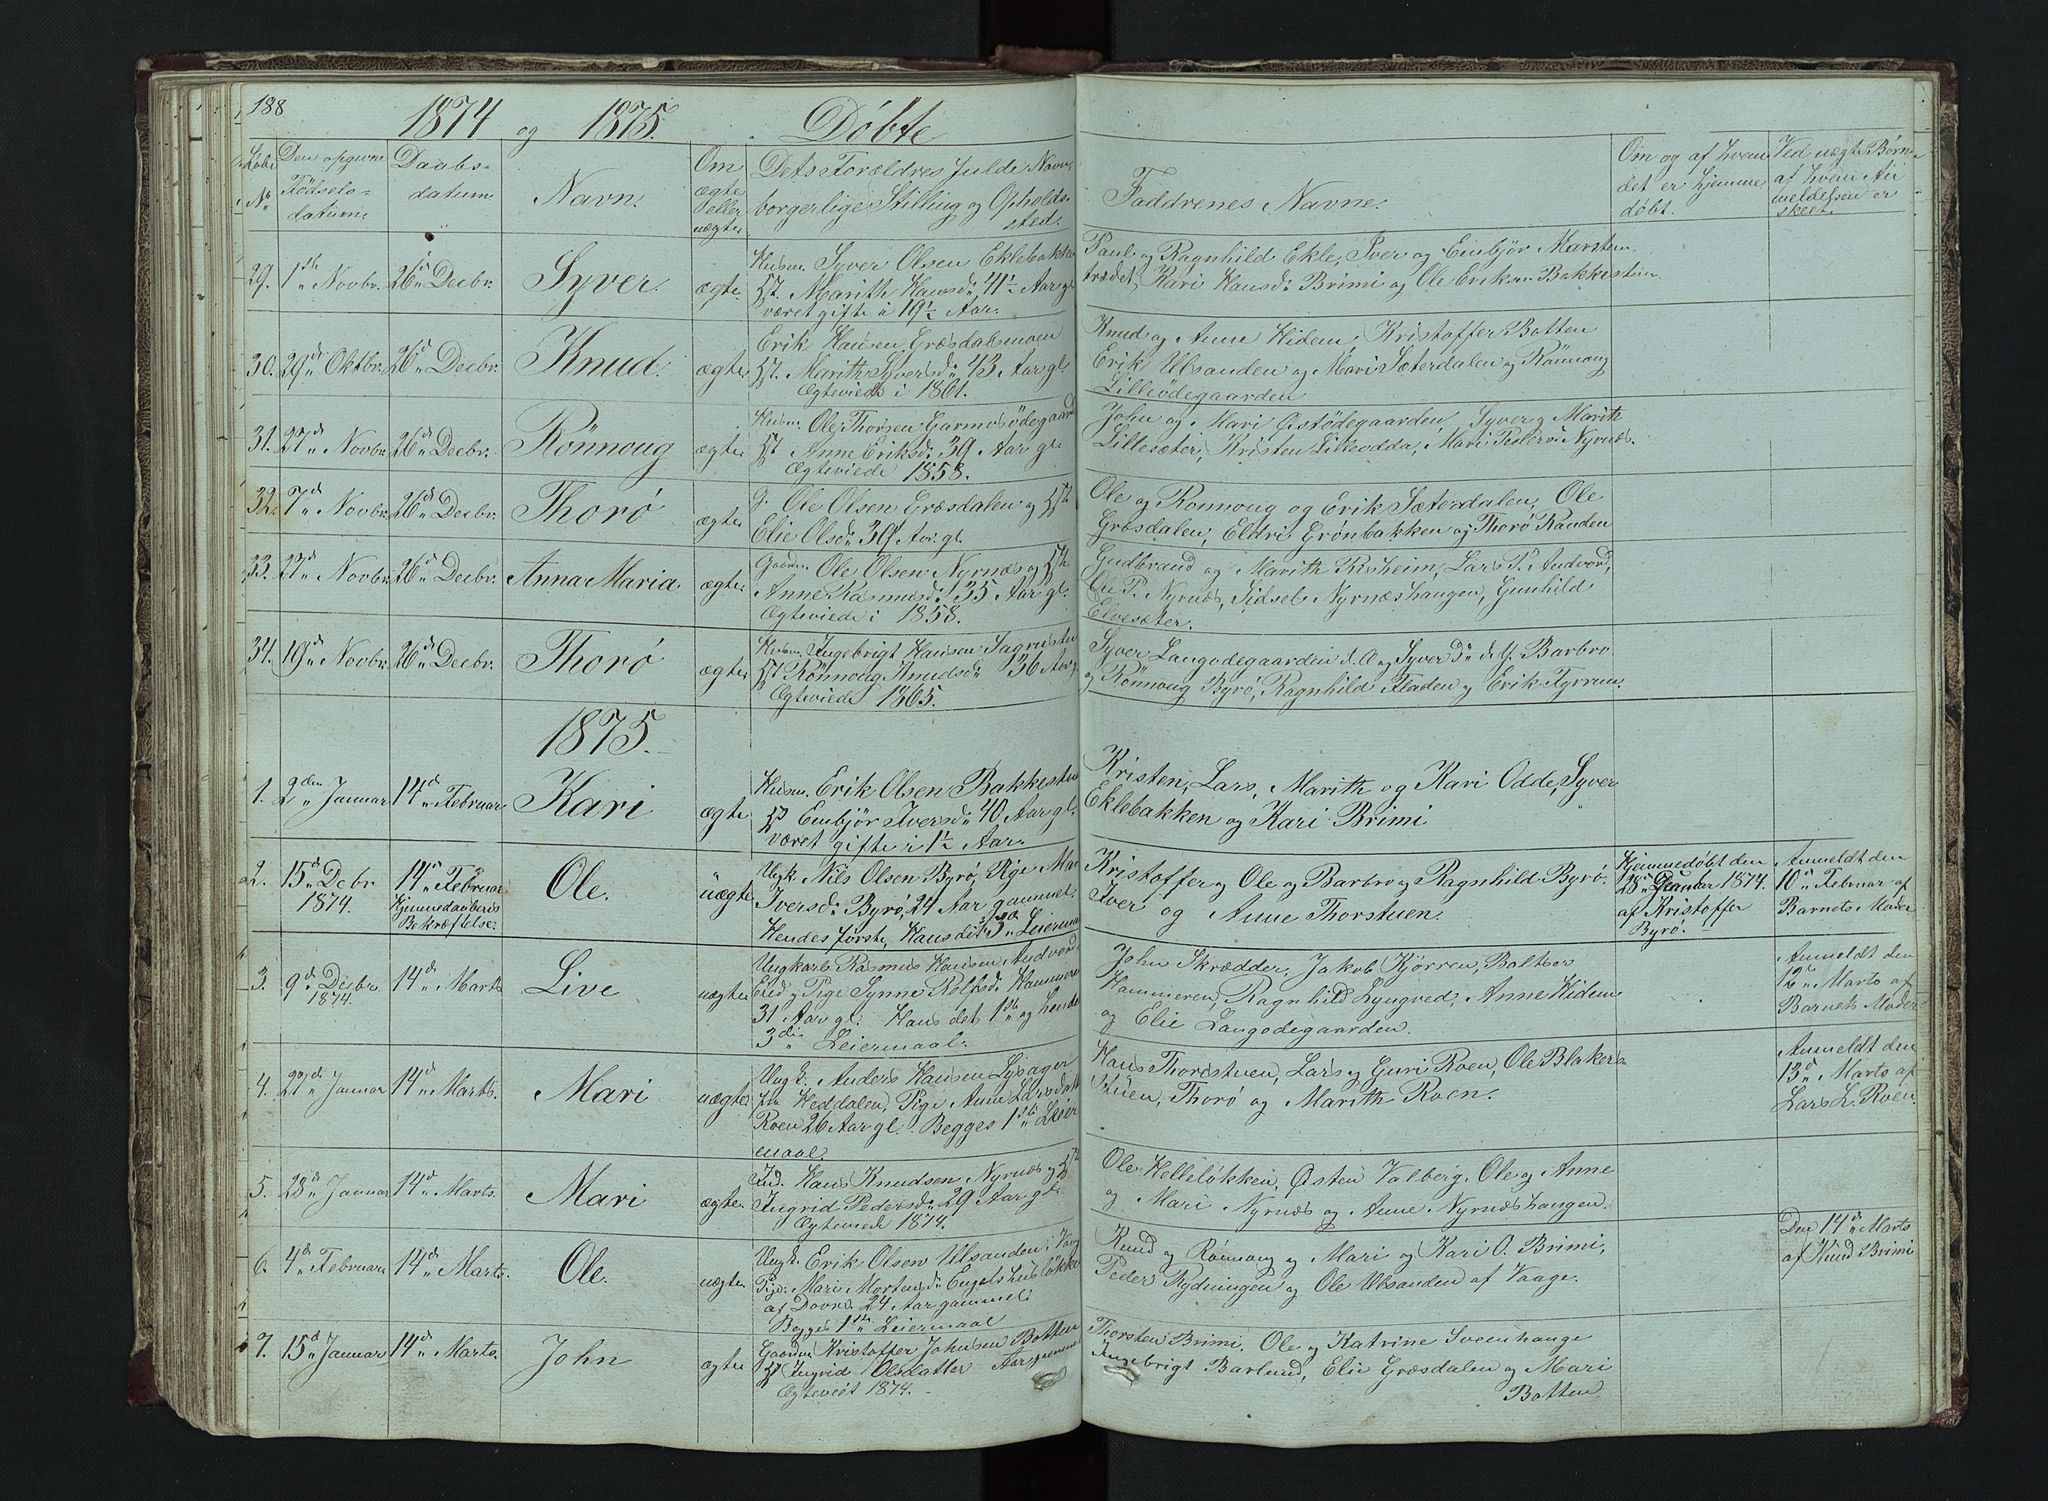 188
1874 og 1875. Döbte
Løbe No
Den opgivne Födselsdatum.
Daabsdatum
Navn.
Om ægte eller uægte.
Dets Forældres fulde Navn, borgerlige Stilling og Opholdssted.
Faddrenes Navne.
Om og af hvem det er hjemmedöbt.
Ved uægte Børn af hvem Anmeldelsen er skeet.
29. 1ste Novbr. 26d Decbr. Syver. ægte.
Husm. Syver Olsen Eklebakken
Hst. Marith Hansd: 41½ Aar gl.
været gifte i 19½ Aar.
Paul og Ragnhild Ekle, Iver og Embjör Marstein,
Kari Hansd: Brimi og Ole Eriksen Bakkestuen
30. 29d Oktbr. 26d Decbr. Knud. ægte
Erik Hansen Græsdalsmoen
Hst. Marith Syversd: 43 Aar gl.
Ægteviede i 1861.
Knud og Anne Hidem, Kristoffer Botten
Erik Ulsanden og Mari Sæterdalen og Rönnoug
Lilleödegaarden
31. 27d Novbr. 26d Decbr. Rönnoug ægte
Husm. Ole Thorsen Garmosödegaard
Hst Anne Eriksd: 39 Aar gl.
Ægteviede 1858.
John og Mari Östödegaarden, Syver og Marith
Lillesæter, Kristen Lilleodda, Mari Nyrnæs.
32. 7d Novbr. 26d Decbr. Thorö ægte
Ole Olsen Græsdalen og Hst.
Elie Olsd: 39 Aar gl.
Ole og Ronnoug og Erik Sæterdalen, Ole
Græsdalen, Eldri Grönbakken og Thorö Randen
33. 27d Novbr. 26d Decbr. Anna Maria. ægte
Gaardm. Ole Olsen Nyrnæs og Hst.
Anne Rasmusd: 35 Aar gl.
Ægteviede i 1858.
Gudbrand og Marith Risheim, Lars P. Andvord,
Ole P. Nyrnæs, Sidsel Nyrnæshaugen, Gunhild
Elvesæter.
34. 19d Novbr. 26d Decbr. Thorö ægte
Husm. Ingebrigt Hansen Sagrusten
Hst Rönnoug Knudsd: 36 Aar gl.
Ægteviede 1865.
Syver Langodegaarden d. Æ og Syver d. Y. Barbro
og Rönnoug Byrö, Ragnhild Fladen og Erik
1875.
1. 2den Januar 14d Februar Kari ægte
Husm. Erik Olsen Bakkestuen
Hst Embjör Iversd: 40 Aar gl.
været gifte i 1½ Aar.
Kristen, Lars, Marith og Kari Odde, Syver
Eklebakken og Kari Brimi
2. 15d Debr. 1874. 14d Februar Hjemmedaabens Bekræftelse. Ole. uægte
Ungk. Nils Olsen Byrö, Pige Mari
Iversd: Byrö, 24 Aar gammel.
Hendes förste, Hans det 3d Leiermaal
Kristoffer og Ole og Barbro og Ragnhild Byrö.
Iver og Anne Thorstuen.
Hjemmedöbt den
28d December 1874.
af Kristoffer
Byrö.
Anmeldt den
10d Februar af
Barnets Moder
3. 9d Decbr. 1874. 14d Marts Live uægte
Ungkarl Rasmus Hansen Andvord
Eied og Pige Synne Rolfsd: Hammeren
31 Aar gl. Hans det 1ste og hendes
3die Leiermaal.
John Skrædder, Jakob Kjörren, Baltser
Hammeren, Ragnhild Lyngved, Anne Hidem
og Elie Langodegaarden.
Anmeldt den
12te Marts af
Barnets Moder
4. 27d Januar 14d Marts. Mari uægte
Ungk. Anders Hansen Lysager
fra Heddalen, Pige Anne Larsdatt
Roen 26 Aar gl. Begges 1ste Leier
maal.
Hans Thorestuen, Lars og Guri Roen, Ole Blaker
Stuen, Thorö og Marith Roen.
Anmeldt den
13d Marts af
Lars L. Roen.
5. 28d Januar 14d Marts. Mari ægte
Ind. Hans Knudsen Nyrnæs og Hst
Ingrid Pedersd: 29 Aar gl.
Ægteviede 1874.
Ole Hellelökken, Östen Valberg, Ole og Anne
og Mari Nyrnæs og Anne Nyrnæshaugen.
6. 4d Februar 14d Marts. Ole. uægte
Ungk. Erik Olsen Ulsanden i Vaage
Pige Mari Mortensd: Engelshuslökken
af Dovre 24 Aar gammel
Begges 1ste Leiermaal
Knud og Rönnoug og Mari og Kari O. Brimi,
Peder Rydningen og Ole Ulsanden af Vaage.
Den 14d Marts
af Knud Brimi
7. 15d Januar 14d Marts. John ægte
Gaardm. Kristoffer Johnsen Botten
Hst Ingrid Olsdatter Aar gammel
Ægteviet 1874.
Thorsten Brimi, Ole og Katrine Sveenhauge
Ingebrigt Barlund, Elie Græsdalen og Mari
Botten